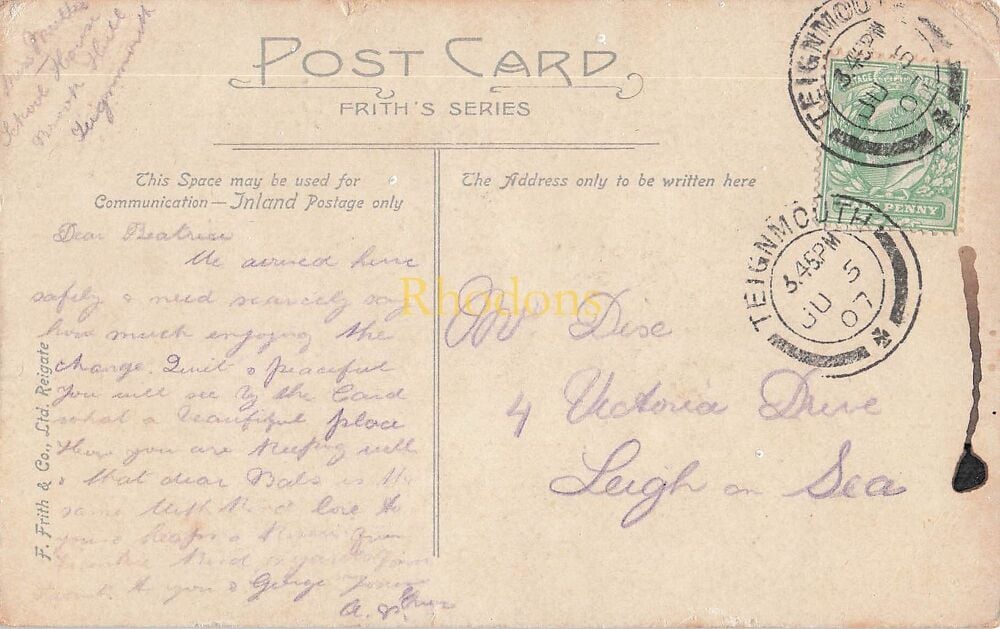 School House
Brook Hill
Teignmouth
POST CARD
FRITH'S SERIES
TEIGNMOUTH
3.45PM
JU 5
07
PENNY
This Space may be used for
Communication — Inland Postage only
The Address only to be written here
Dear Beatrice
We arrived here
safely & need scarcely say
how much enjoying the
change. Quiet & peaceful
You will see by the Card
what a beautiful place
Hope you are keeping well
& that dear Babs is the
same With kind love to
you & heaps
kind regards from
to you & George
Rhodons
TEIGNMOUTH
3.45PM
JU 5
07
Dixe
4 Victoria Drive
Leigh on Sea
F. Frith & Co., Ltd. Reigate